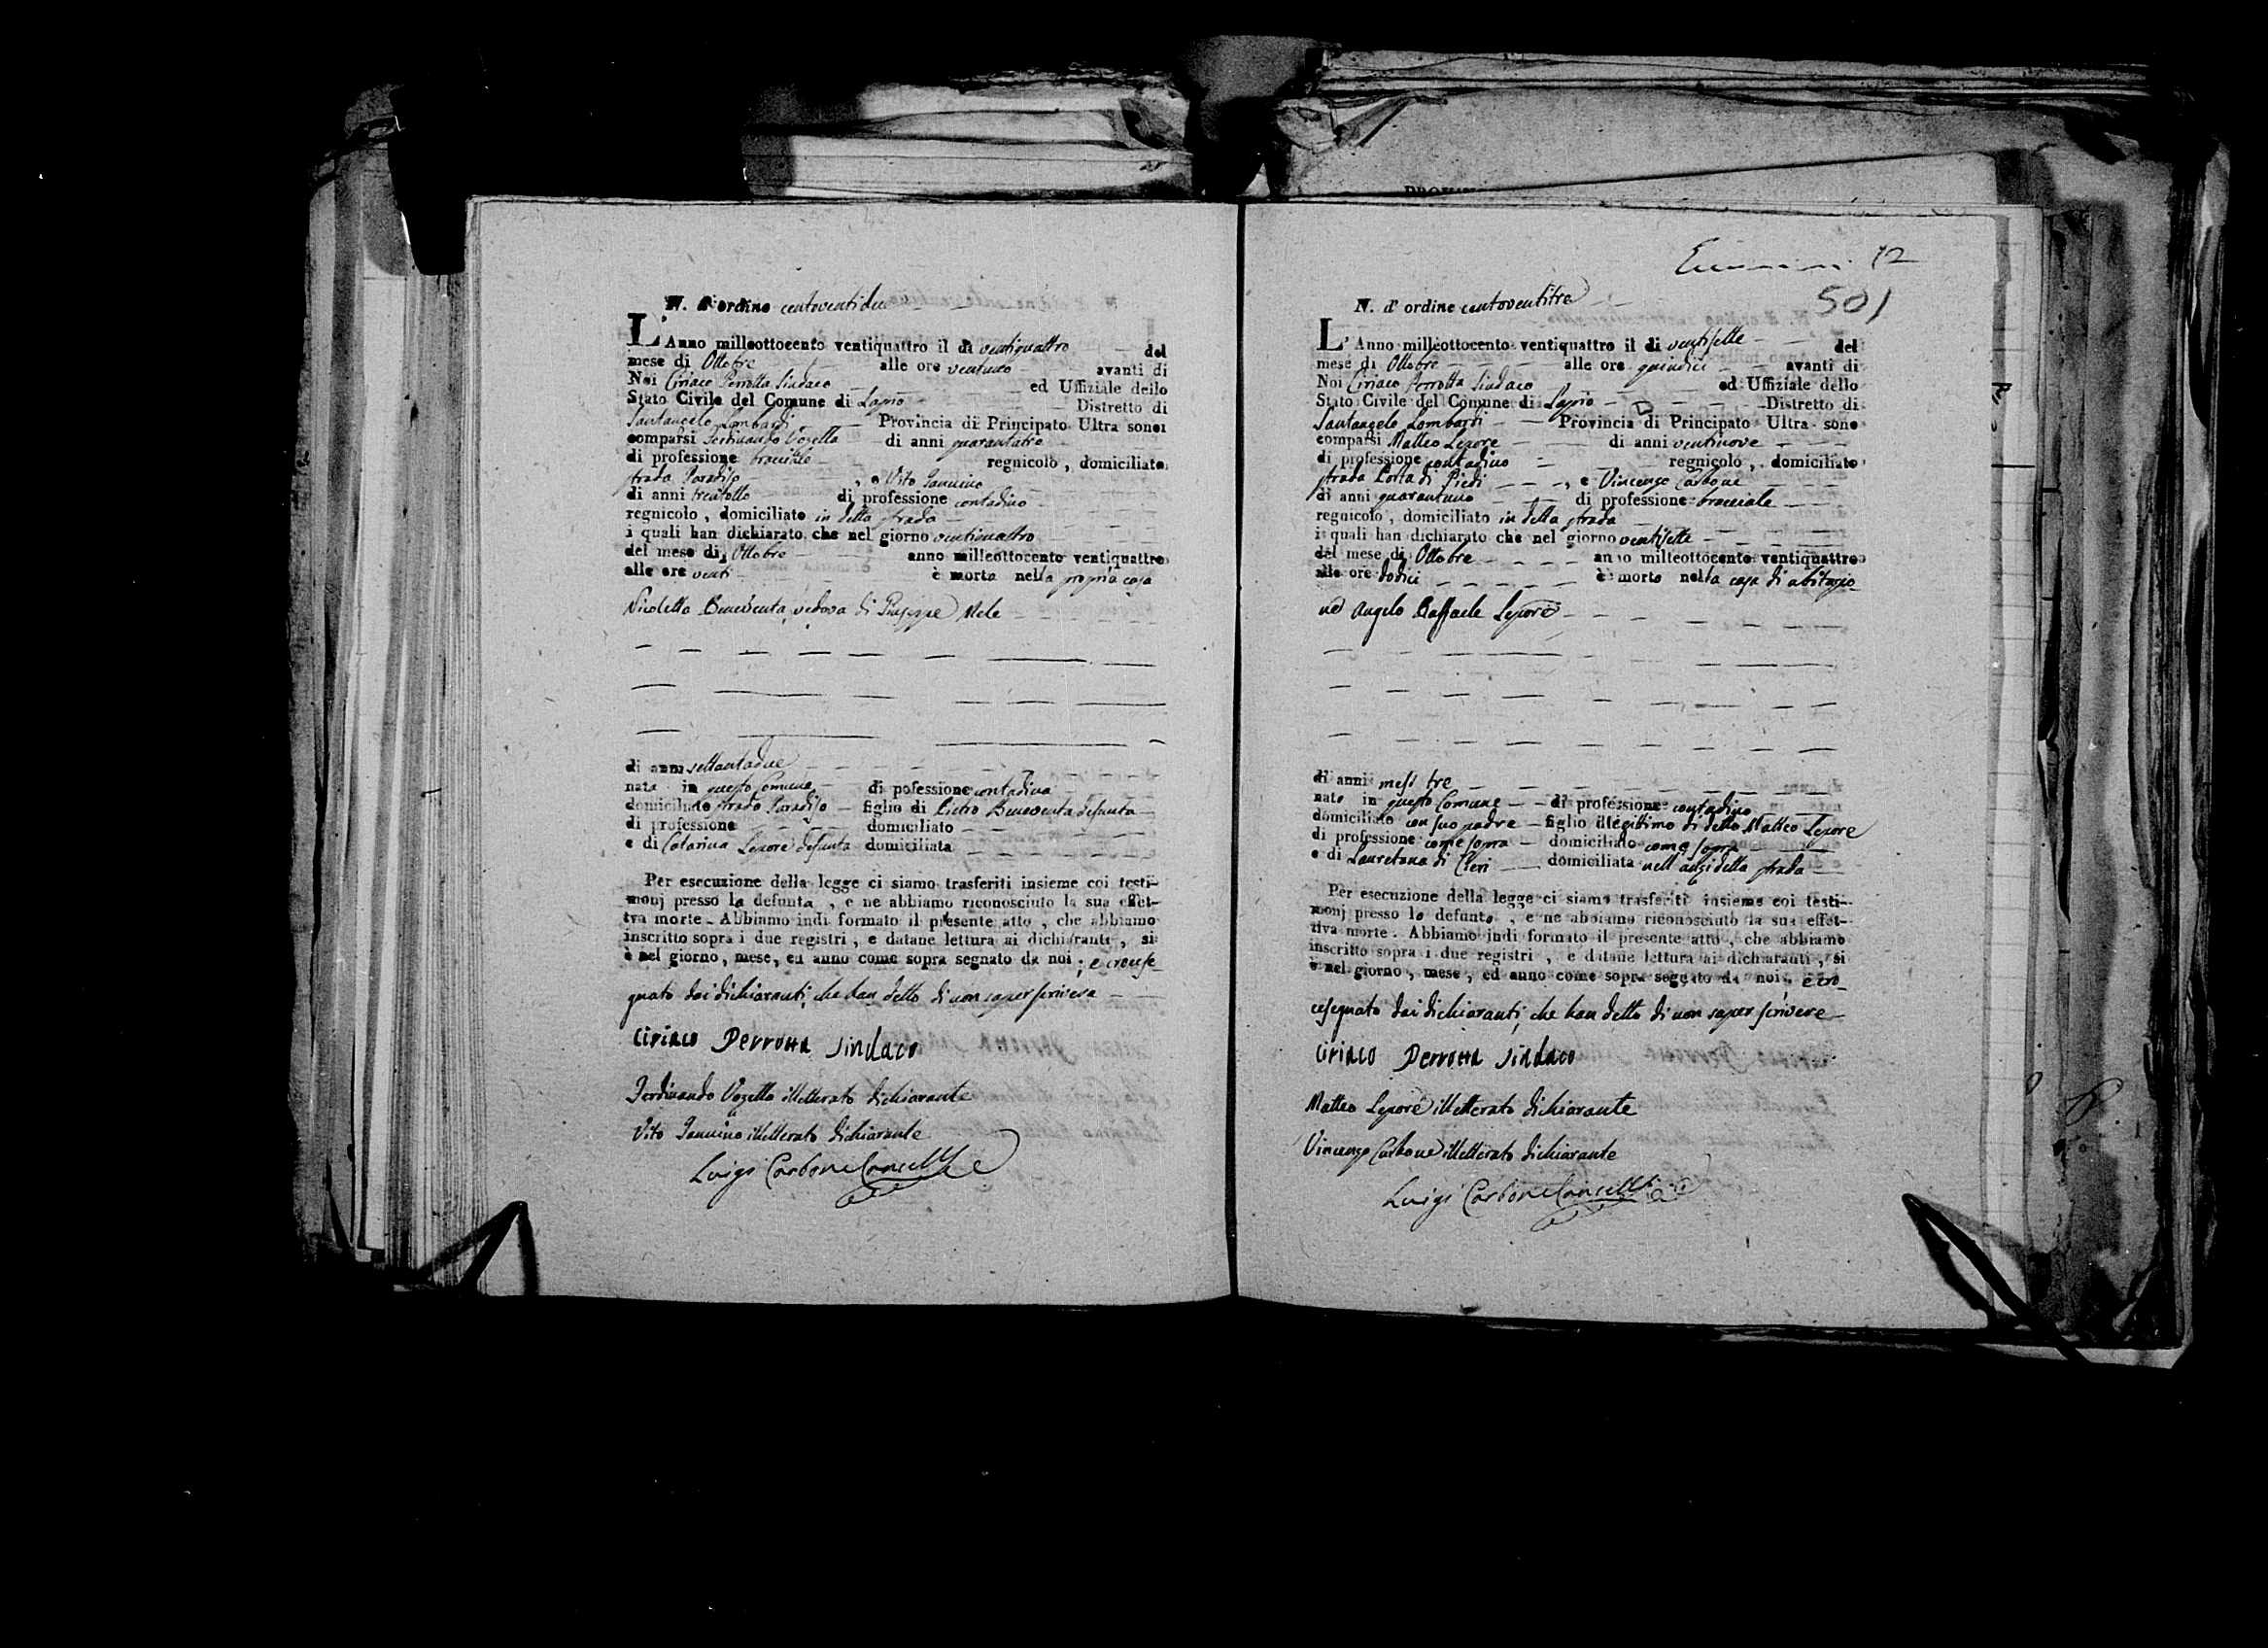 N. d'ordine centoventidue
L'Anno milleottocento ventiquattro il dì ventiquattro del
mese di Ottobre alle ore ventuno avanti di
Noi Ciriaco Perrotta Sindaco ed Uffiziale dello
Stato Civile del Comune di Lapio Distretto di
Santangelo Lombardi Provincia di Principato Ultra sono
comparsi Ferdinando Vozella di anni quarantatre
di professione bracciale regnicolo, domiciliato
strada Paradiso, e Vito Iannino
di anni trentotto di professione contadino
regnicolo, domiciliato in detta strada
i quali han dichiarato che nel giorno ventiquattro
del mese di Ottobre anno milleottocento ventiquattro
alle ore venti è morta nella propria casa
Nicoletta Beneventa vedova di Giuseppe Mele
di anni settantadue
nata in questo Comune di pofessione contadina
domiciliato strada Paradiso figlio di Pietro Beneventa defunto
di professione domiciliato
e di Catarina Lepore defunta domiciliata
Per esecuzione della legge ci siamo trasferiti insieme coi testi-
monj presso la defunta, e ne abbiamo riconosciuto la sua effet-
tva morte. Abbiamo indi formato il presente atto, che abbiamo
inscritto sopra i due registri, e datane lettura ai dichiaranti, si
è nel giorno, mese, ed anno come sopra segnato da noi; e crocese-
gnato dai dichiaranti, che han detto di non saper scrivere
Ciriaco Perrotta Sindaco
Ferdinando Vozella illetterato dichiarante
Vito Iannino illetterato dichiarante
Luigi Carbone Cancelle
12
501
N. d'ordine centoventitre
L'Anno milleottocento ventiquattro il dì ventisette del
mese di Ottobre alle ore quindici avanti di
Noi Ciriaco Perrotta Sindaco ed Uffiziale dello
Stato Civile del Comune di Lapio Distretto di
Santangelo Lombardi Provincia di Principato Ultra sono
comparsi Matteo Lepore di anni ventinove
di professione contadino regnicolo, domiciliato
strada Porta di Piedi, e Vincenzo Carbone
di anni quarantuno di professione bracciale
regnicolo, domiciliato in detta strada
i quali han dichiarato che nel giorno ventisette
del mese di Ottobre anno milleottocento ventiquattro
alle ore dodici è morto nella casa di abitazio-
ne Angelo Raffaele Lepore
di anni mesi tre
nato in questo Comune di professione contadino
domiciliato con suo padre figlio illegittimo di detto Matteo Lepore
di professione come sopra domiciliato come sopra
e di Lauretana di Cleri domiciliata nell'anzidetta strada
Per esecuzione della legge ci siamo trasferiti insieme coi testi-
monj presso lo defunto, e ne abbiamo riconosciuto la sua effet-
tiva morte. Abbiamo indi formato il presente atto, che abbiamo
inscritto sopra i due registri, e datane lettura ai dichiaranti, si
è nel giorno, mese, ed anno come sopra segnato da noi, e cro-
cesegnato dai dichiaranti, che han detto di non saper scrivere
Ciriaco Perrotta Sindaco
Matteo Lepore illetterato dichiarante
Vincenzo Carbone illetterato dichiarante
Luigi Carbone Cancelle